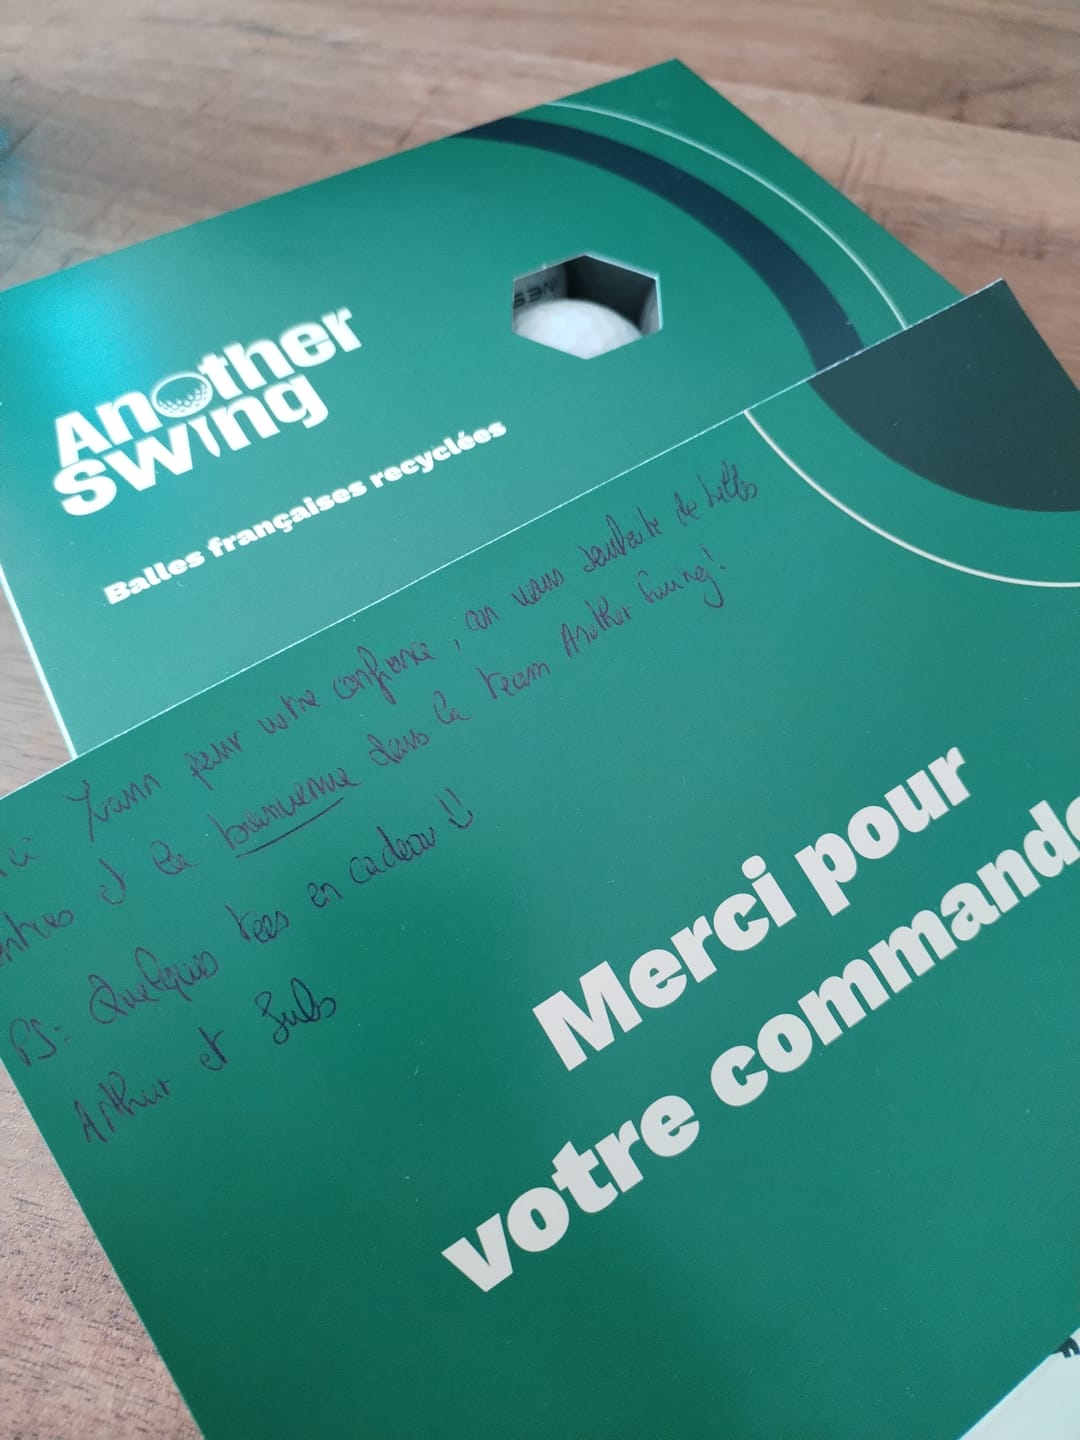 Another
Swing
Balles françaises recyclées
Yvann pour votre confiance, on vous souhaite de belles
et la bienvenue dans la team Another Swing!
PS: Quelques tees en cadeau
Arthur et Jules
Merci pour
votre commande